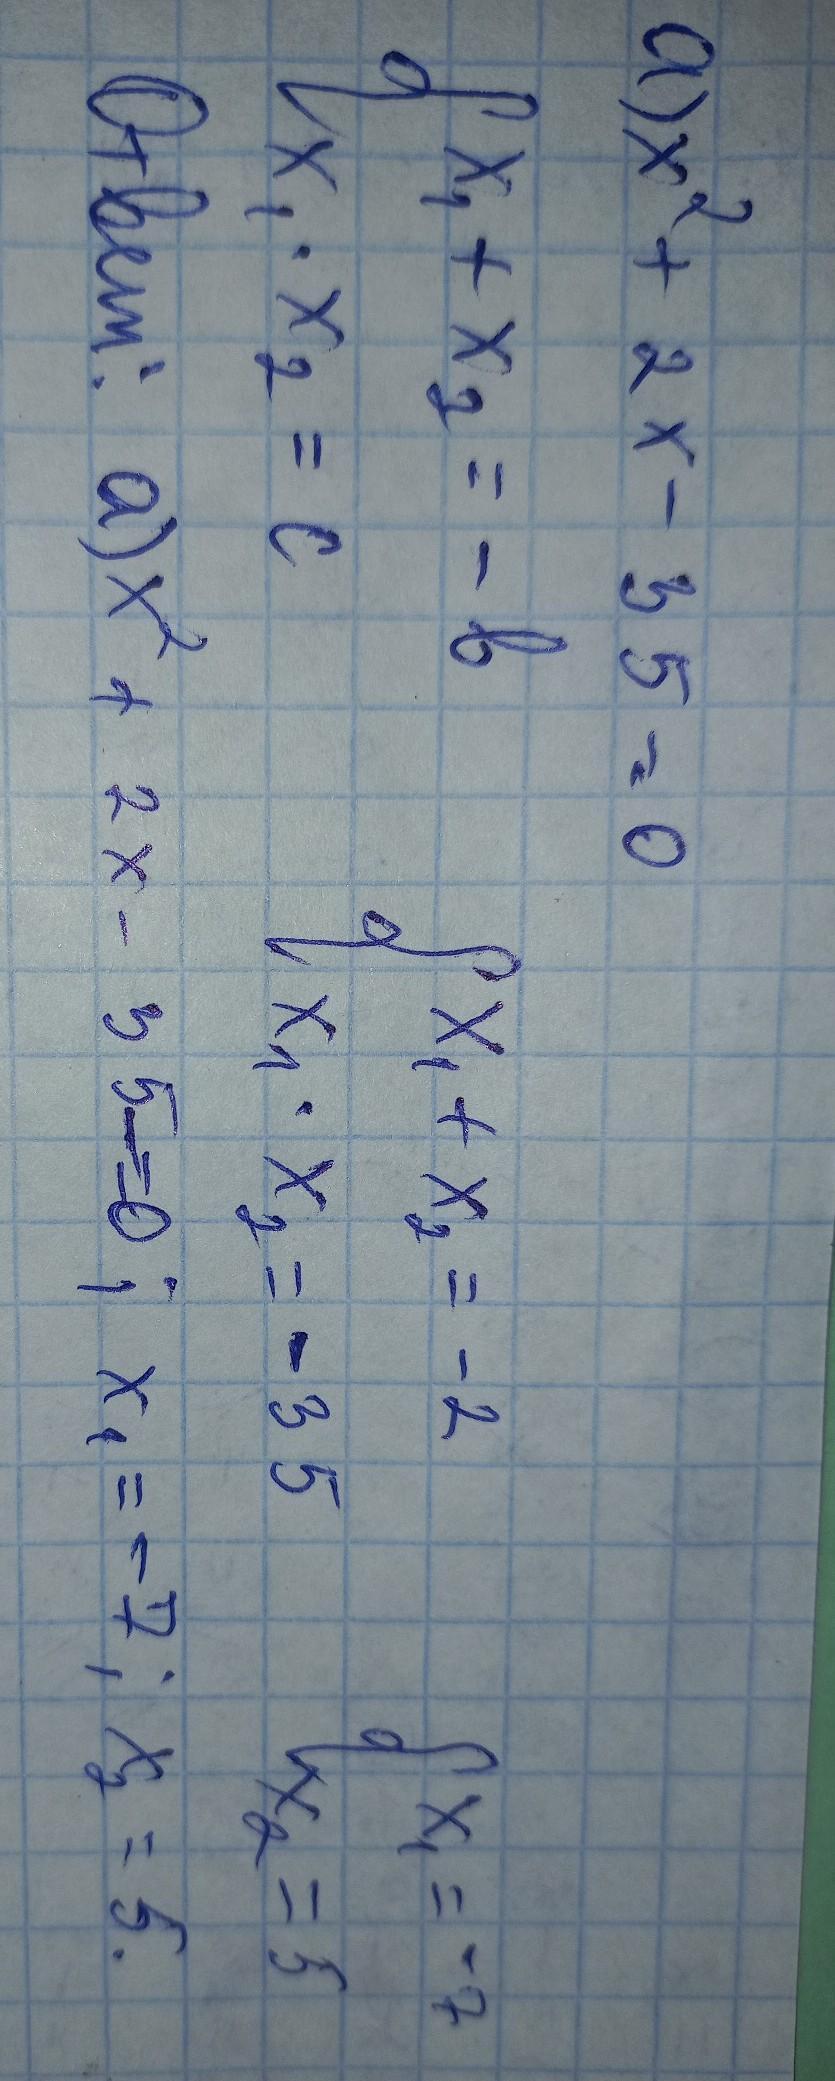 а) x² + 2x - 35 = 0
{ x₁ + x₂ = -b { x₁ + x₂ = -2 { x₁ = -7
{ x₁ · x₂ = c { x₁ · x₂ = -35 { x₂ = 5
Ответ: а) x² + 2x - 35 = 0; x₁ = -7; x₂ = 5.